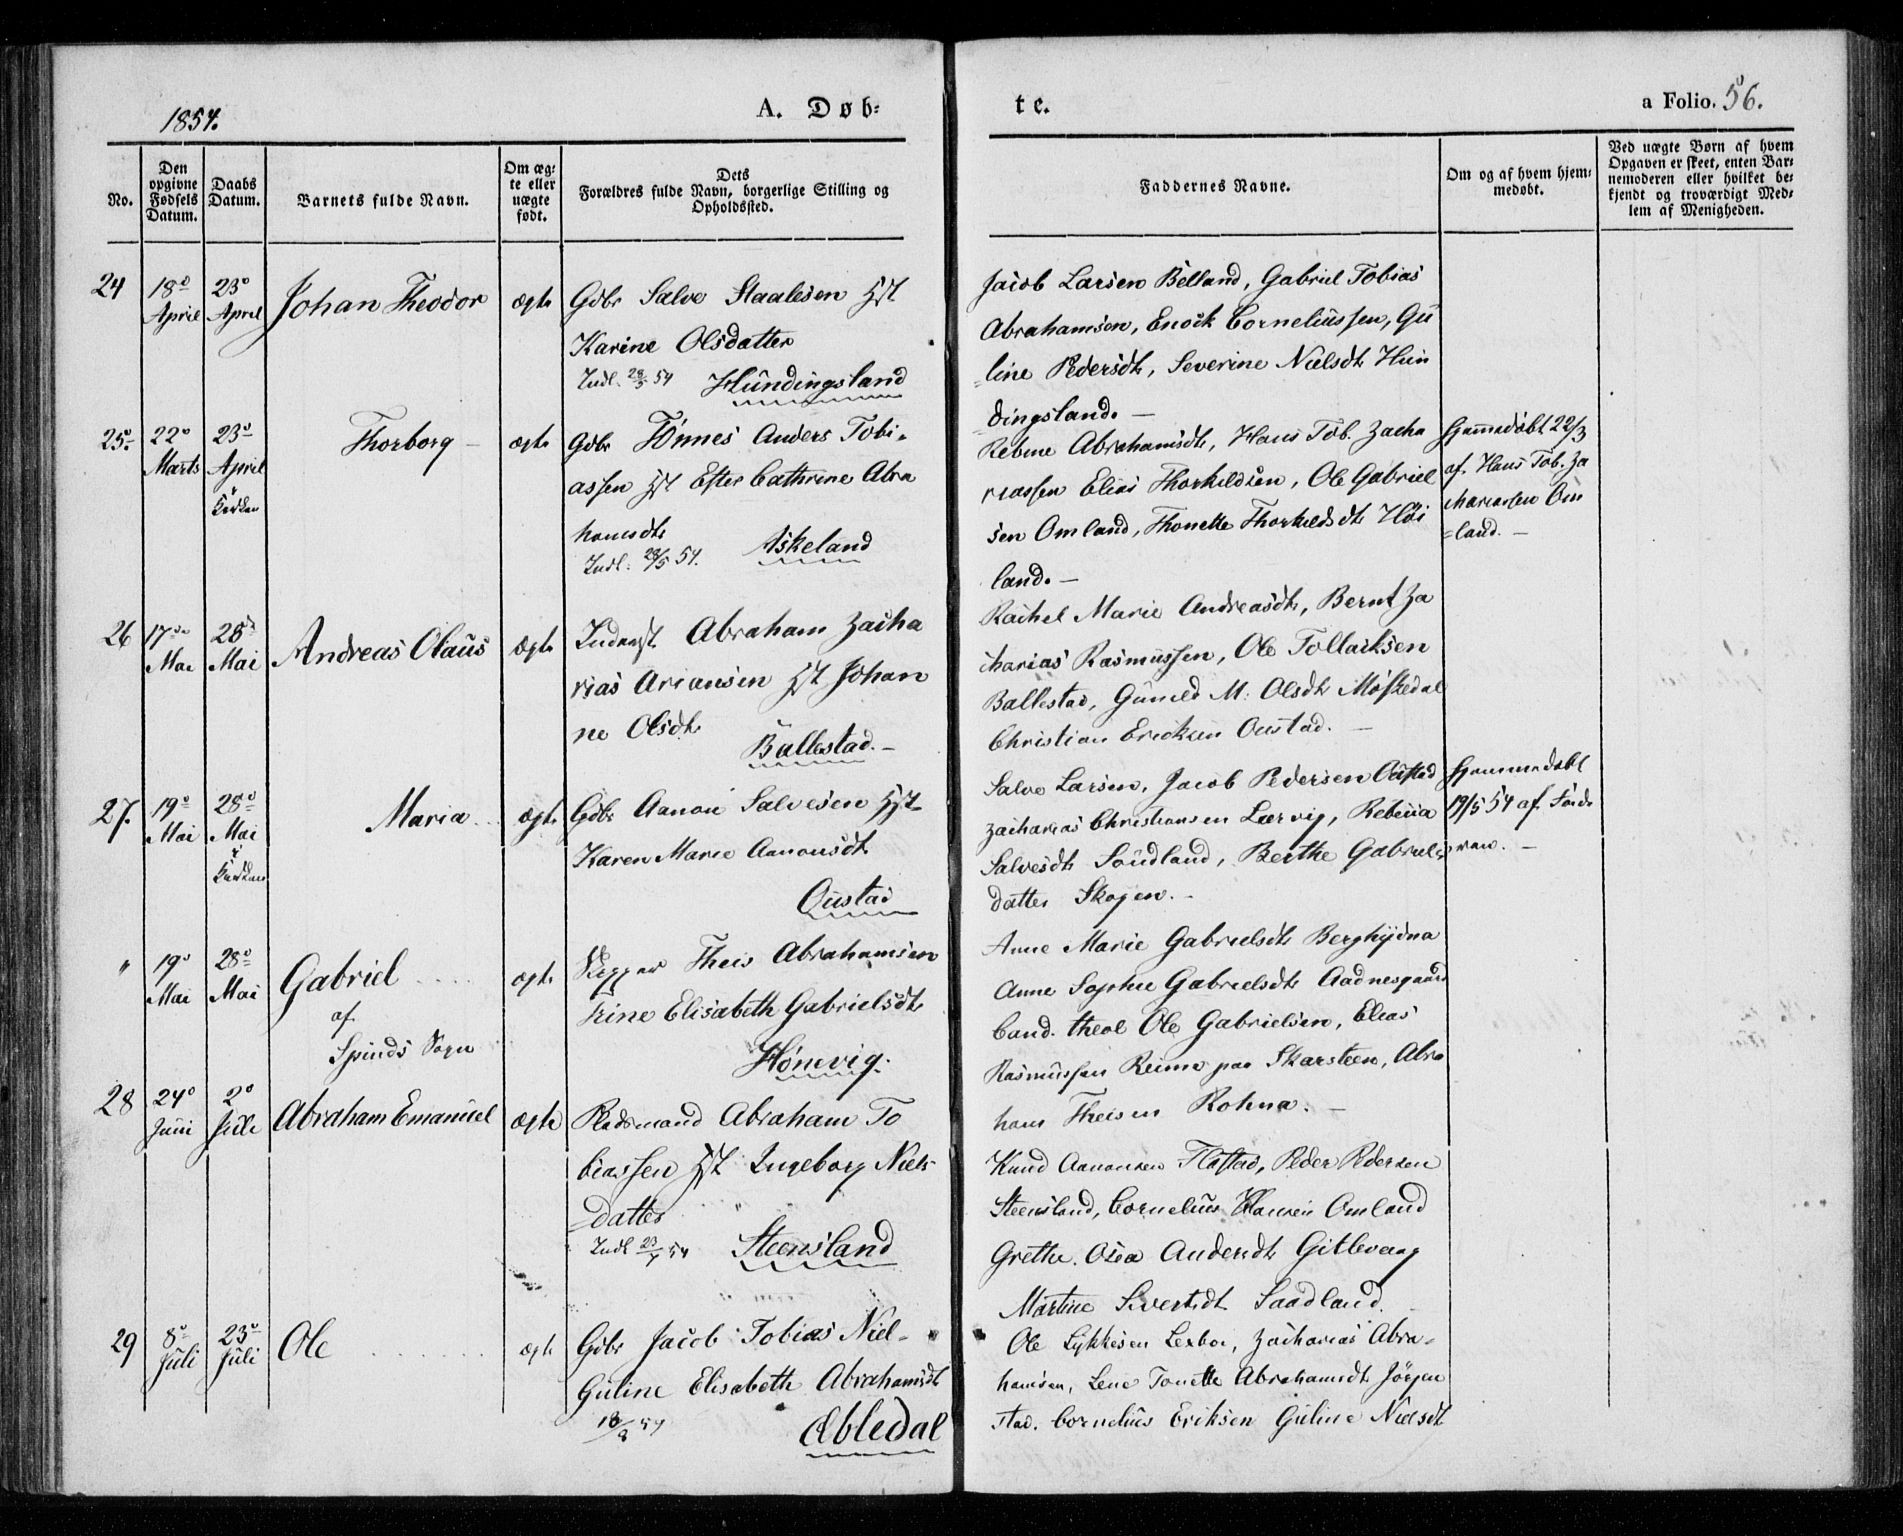 1854.
A. Døb-
te.
a Folio. 56.
No.
Den opgivne Fødsels Datum.
Daabs Datum.
Barnets fulde Navn.
Om ægte eller uægte født.
Dets Forældres fulde Navn, borgerlige Stilling og Opholdssted.
Faddernes Navne.
Om og af hvem hjemmedøbt.
Ved uægte Børn af hvem Opgaven er skeet, enten Barnemoderen eller hvilket bekjendt og troværdigt Medlem af Menigheden.
24
18de April
23de April
Johan Theodor
ægte
Gdbr Salve Staalesen Hst
Karine Olsdatter
Indl. 28/5 54 Hundingsland
Jacob Larsen Belland, Gabriel Tobias
Abrahamsen, Enock Corneliussen, Gu
line Pedersdt, Severine Nielsdt Hun
dingsland. —
25
22de Marts
23de April i Kirken
Thorborg —
ægte
Gdbr Tønnes Anders Tobi-
assen Hst Ester Cathrine Abra
hamsdt
Indl. 28/5 54. Askeland
Rebine Abrahamsdt, Hans Tob. Zacha
riassen Elias Thorkildsen, Ole Gabriel
sen Omland, Thonette Thorkildsdt Høi
land. —
Hjemmedøbt 22/3
af Hans Tob. Za
chariassen Om
land. —
26
17de Mai
28de Mai
Andreas Olaus
ægte
Inderst Abraham Zacha
rias Ariansen Hst Johan
ne Olsdt
Ballestad. —
Rachel Marie Andreasdt, Bernt Za
charias Rasmussen, Ole Tollacksen
Ballestad, Guneld M. Olsdt Møskedal
Christian Ericksen Oustad. —
27.
19de Mai
28de Mai i Kirken
Maria
ægte
Gdbr Aanon Salvesen Hst
Karen Marie Aanonsdt
Oustad
Salve Larsen, Jacob Pedersen Oustad
Zacharias Christiansen Lervig, Rebecca
Salvesdt Sandland, Berthe Gabriels
datter Skogen. —
Hjemmedøbt
19/5 54 af
"
19de Mai
28de Mai
Gabriel
af
Spinds Sogn
ægte
Skipper Theis Abrahamsen
Trine Elisabeth Gabrielsdt
Hønevig.
Anne Marie Gabrielsdt
Anne Sophie Gabrielsdt Aadnesgaard
Cand. theol Ole Gabrielsen, Elias
Rasmussen Reime paa Skarsteen, Abra
ham Theisen Rohna. —
28
24de Juni
2de Juli
Abraham Emanuel
ægte
Pladsmand Abraham To
biassen Hst Ingeborg Niels
datter
Indl 23/7 54 Steensland
Knud Aanonsen Flastad, Peder Pedersen
Steensland, Cornelius Hansen Omland
Grethe Osea Andersdt Gitlevaag
Martine Sivertsdt Saadland.
29
8de Juli
23de Juli
Ole
ægte
Gdbr Jacob Tobias Niel-
Guline Elisabeth Abrahamsdt
18/8 54 Æbledal
Ole Lykkesen Lerboe, Zacharias Abra-
hamsen, Lene Tonette Abrahamsdt Jørgen
stad. Cornelius Eriksen Guline Nielsdt